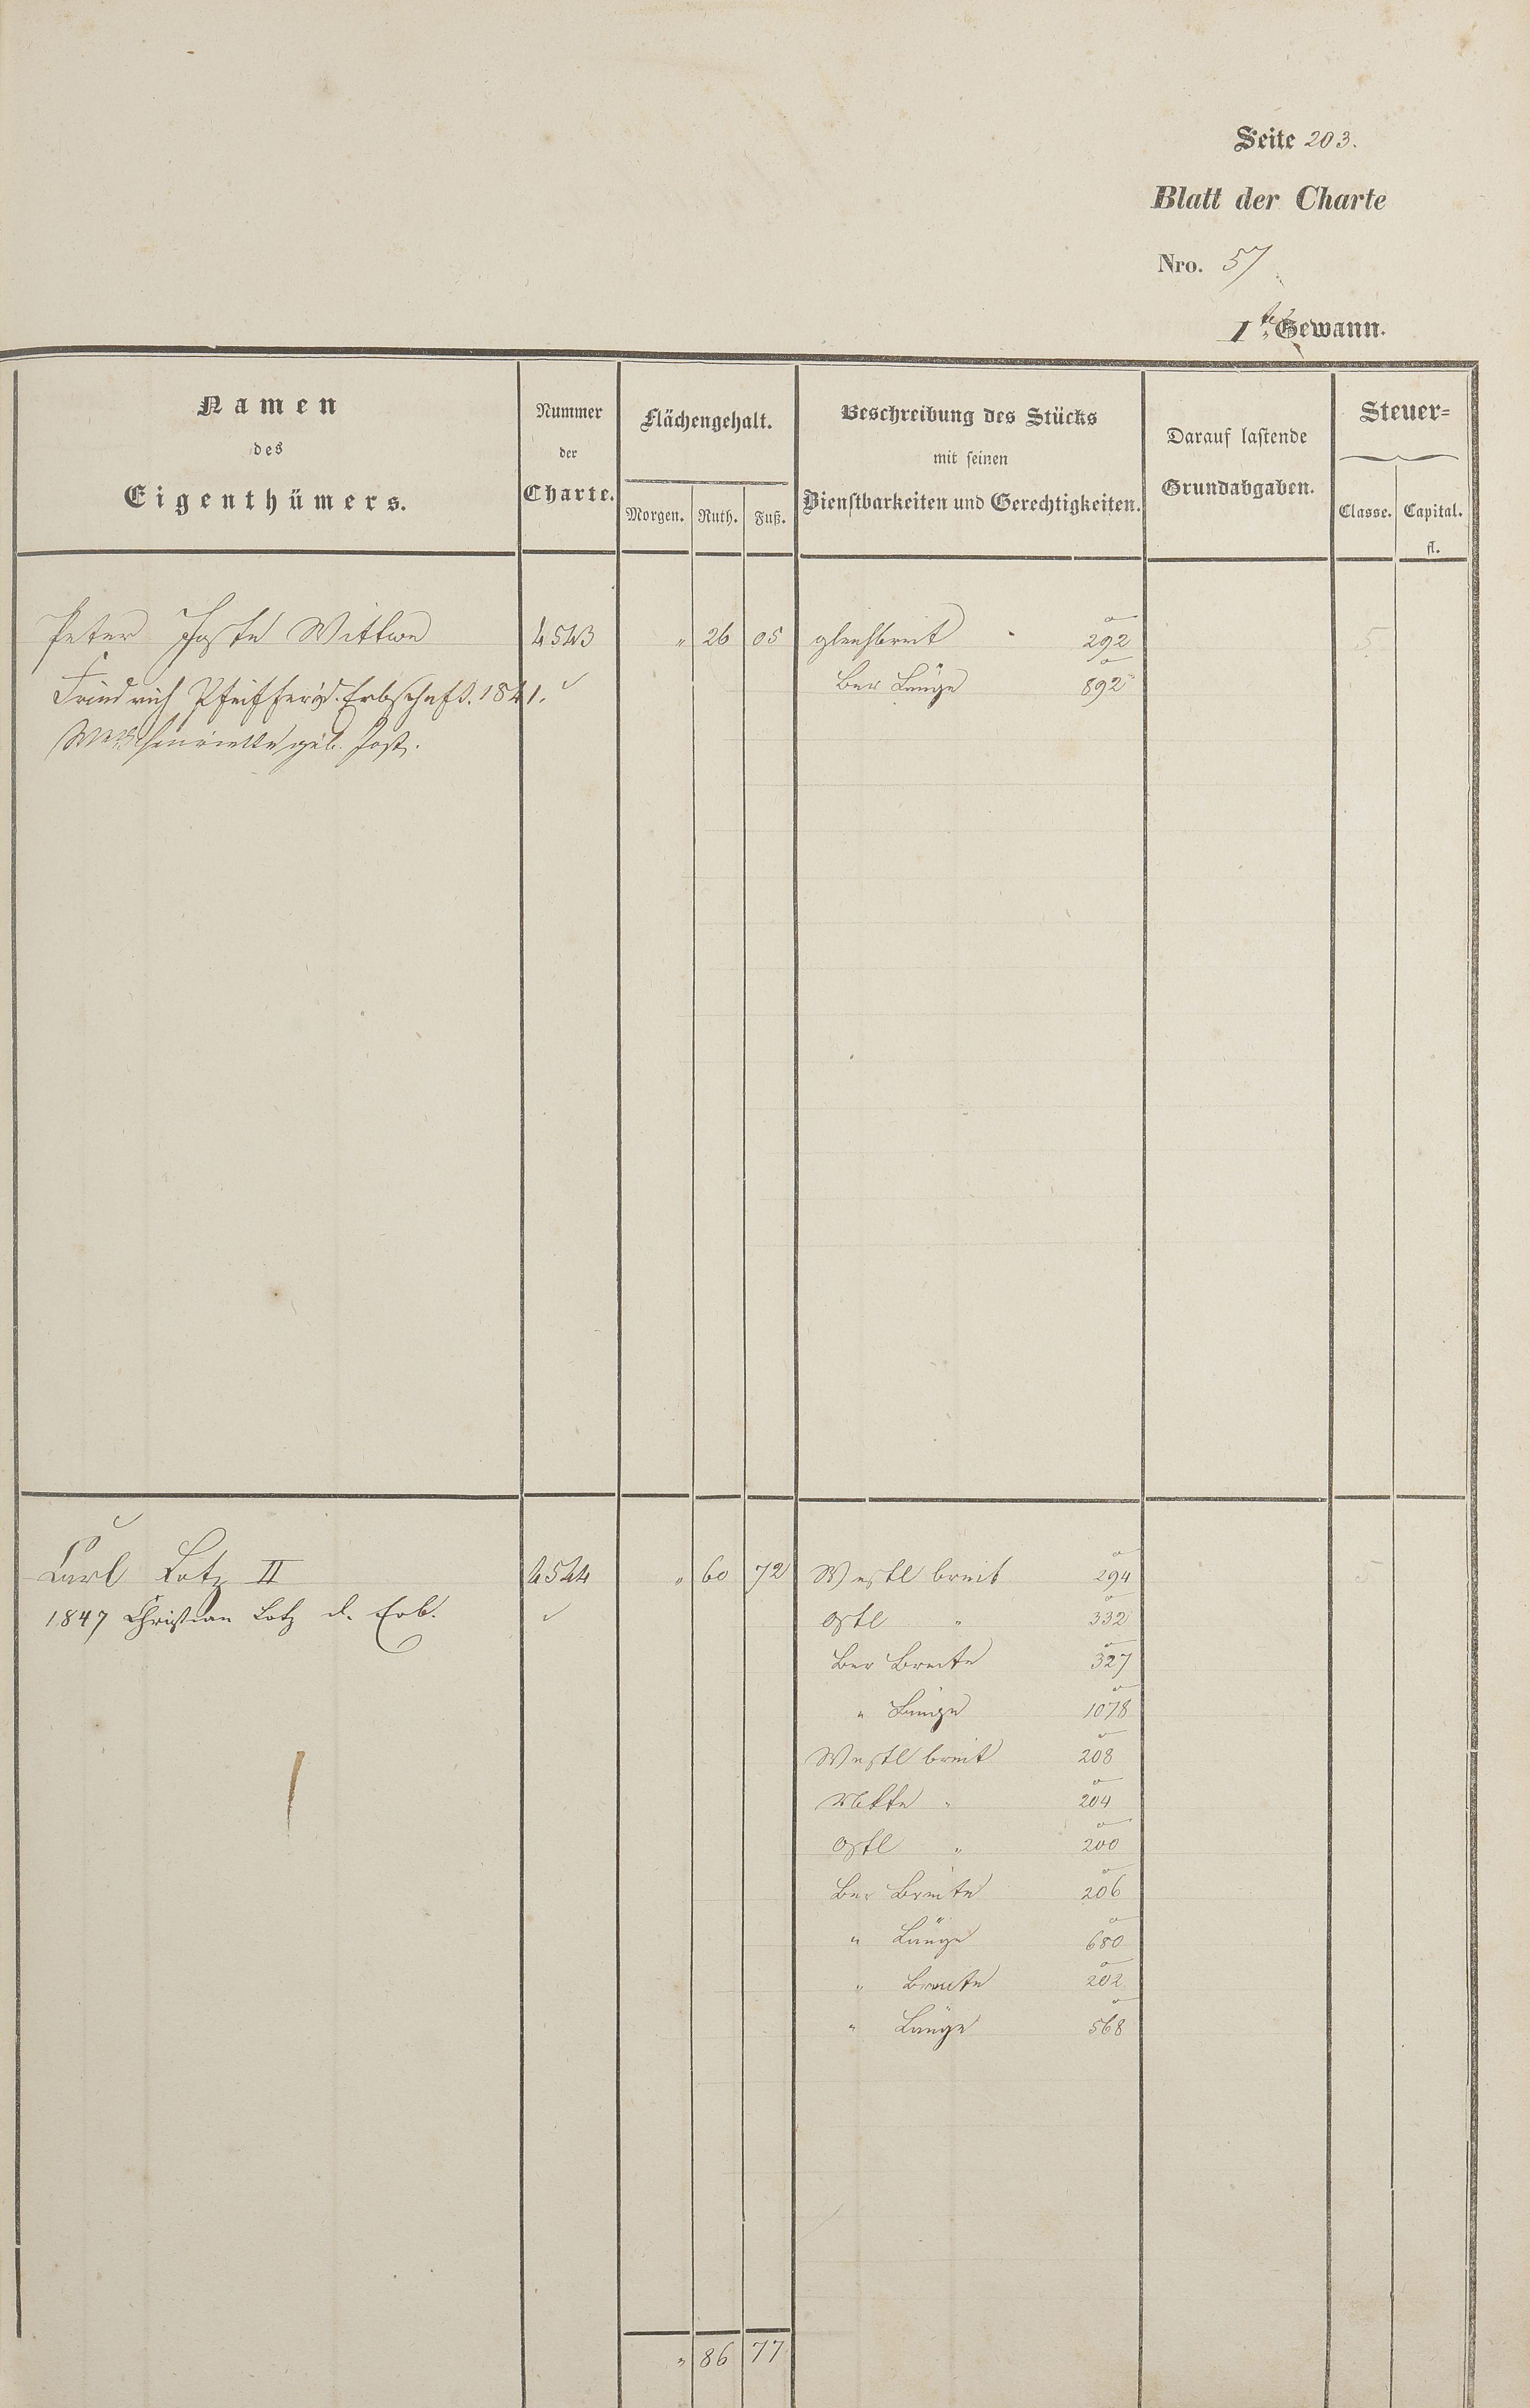 Seite 203.
Blatt der Charte
Nro. 57
1te Gewann.
Namen
des
Eigenthümers.
Nummer
der
Charte.
Flächengehalt.
Morgen. Ruth. Fuß.
Beschreibung des Stücks
mit seinen
Dienstbarkeiten und Gerechtigkeiten.
Darauf lastende
Grundabgaben.
Steuer=
Classe. Capital.
fl.
Peter Josts Wittwe 4543 " 26 05 gleichbreit 292 5
Friedrich Pfeiffer d. Erbschaft. 1841. Ber Länge 892
Henriette geb. Jost.
Carl Lotz II 4544 " 60 72 Westl breit 294 5
1847 Christian Lotz d. Erb. Ostl " 332
Ber Breite 327
" Länge 1078
Westl breit 208
Mitte " 204
Ostl " 200
Ber Breite 206
" Länge 680
" Breite 202
" Länge 568
" 86 77